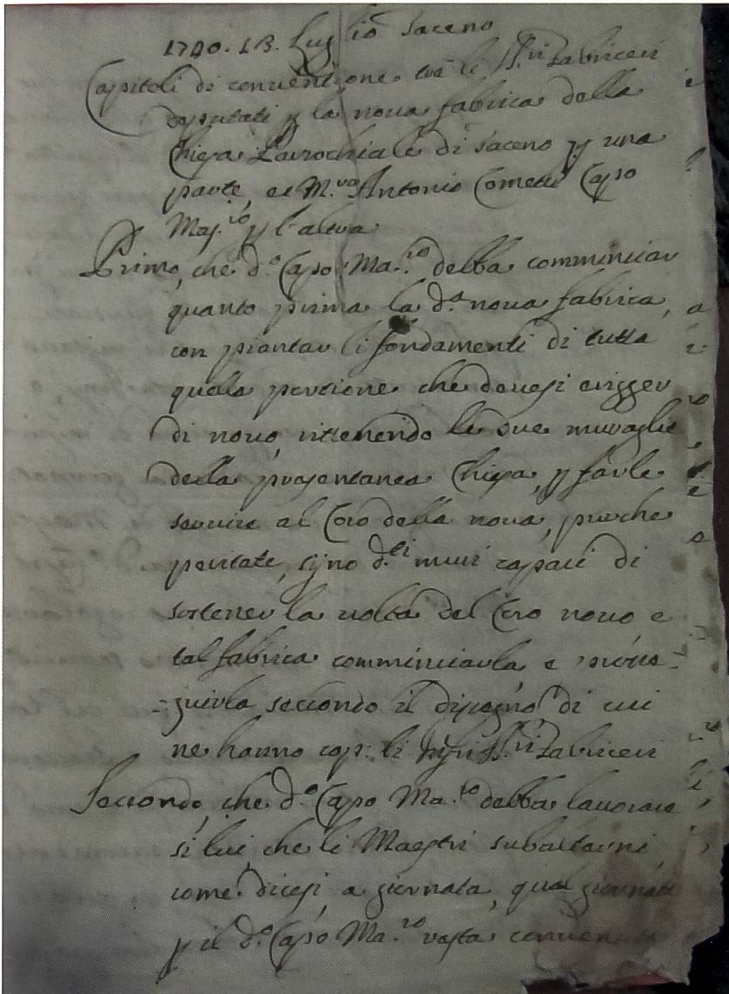 1740. 13. Luglio Saceno
Capitoli di conventione tra li SS.ri Fabriceri
deputati p la nova fabrica della
Chiesa Parrochiale di Saceno p una
parte, et M.ro Antonio Cometti Capo
Mas.ro p l'altra
Primo, che d.o Capo Ma.ro debba comminciar
quanto prima la d.a nova fabrica,
con piantar li fondamenti di tutta
quella portione che devesi erigger
di novo, ritenendo le due muraglie
della presentanea Chiesa, p farle
servire al Coro della nova, purche
peritate, sijno d.ti muri capaci di
sostener la volta del Coro novo e
tal fabrica comminciarla e prose-
-guirla secondo il disegno di cui
ne hanno cop: li SS.ri Fabriceri
Secondo, che d.o Capo Ma.ro debba lavorare
si lui, che li Maestri subalterni,
come dicesi a giornata, qual giornata
p il d.o Capo Ma.ro resta